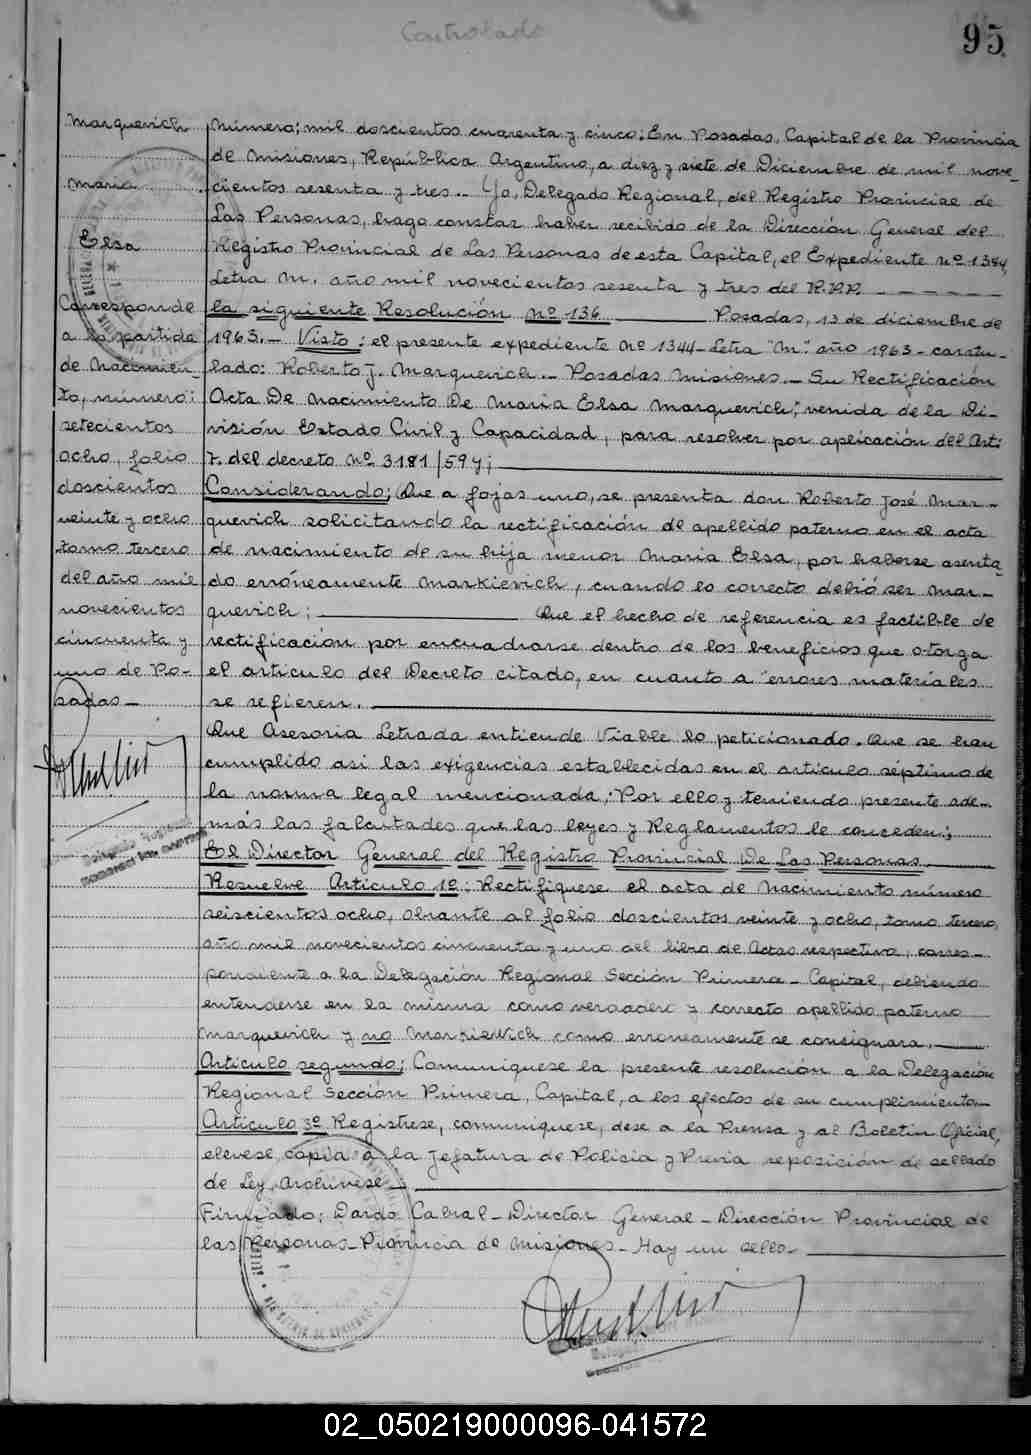 Controlado
95
Marquevich
Maria
Elsa
Corresponde
a la partida
de Nacimien-
to, número:
setecientos
ocho, folio
doscientos
veinte y ocho
tomo tercero
del año mil
novecientos
cincuenta y
uno de Po-
sadas—
Número; mil doscientos cuarenta y cinco: En Posadas, Capital de la Provincia
de Misiones, República Argentina, a diez y siete de Diciembre de mil nove-
cientos sesenta y tres.- Yo, Delegado Regional, del Registro Provincial de
Las Personas, hago constar haber recibido de la Dirección General del
Registro Provincial de Las Personas de esta Capital, el Expediente Nº 1384,
Letra M. año mil novecientos sesenta y tres del R.P.P.
la siguiente Resolución Nº 136 Posadas, 13 de diciembre de
1963.- Visto: el presente expediente Nº 1344-Letra "M". año 1963-caratu-
lado: Roberto J. Marquevich.- Posadas Misiones.- Su Rectificación
Acta De Nacimiento De Maria Elsa Marquevich; venida de la Di-
visión Estado Civil y Capacidad, para resolver por aplicación del Art:
7. del decreto Nº 3181/59 y;
Considerando; Que a fojas uno, se presenta don Roberto José Mar-
quevich solicitando la rectificación de apellido paterno en el acta
de nacimiento de su hija menor Maria Elsa, por haberse asenta-
do erróneamente Markievich, cuando lo correcto debió ser Mar-
quevich: Que el hecho de referencia es factible de
rectificación por encuadrarse dentro de los beneficios que otorga
el articulo del Decreto citado, en cuanto a errores materiales
se refieren.
Que Asesoria Letrada entiende Viable lo peticionado. Que se han
cumplido asi las exigencias establecidas en el artículo séptimo de
la norma legal mencionada; Por ello y teniendo presente ade-
más las falcutades que las leyes y Reglamentos le conceden;
El Director General del Registro Provincial De Las Personas
Resuelve Articulo 1º: Rectifiquese el acta de Nacimiento número
seiscientos ocho, obrante al folio doscientos veinte y ocho, tomo tercero,
año mil novecientos cincuenta y uno del libro de Actas respectivo, corres-
pondiente a la Delegación Regional Sección Primera- Capital, debiendo
entenderse en la misma como verdadero y correcto apellido paterno
Marquevich y no Markiewich como erroneamente se consignara.
Articulo segundo; Comuniquese la presente resolución a la Delegación
Regional Sección Primera, Capital, a los efectos de su cumplimiento—
Articulo 3º Registrese, comuniquese, dese a la Prensa y al Boletin Oficial,
elevese copia a la Jefatura de Policia y Previa reposición de sellado
de Ley, Archivese
Firmado; Dardo Cabral- Director General- Dirección Provincial de
las Personas- Provincia de Misiones- Hay un sello-
02_050219000096-041572